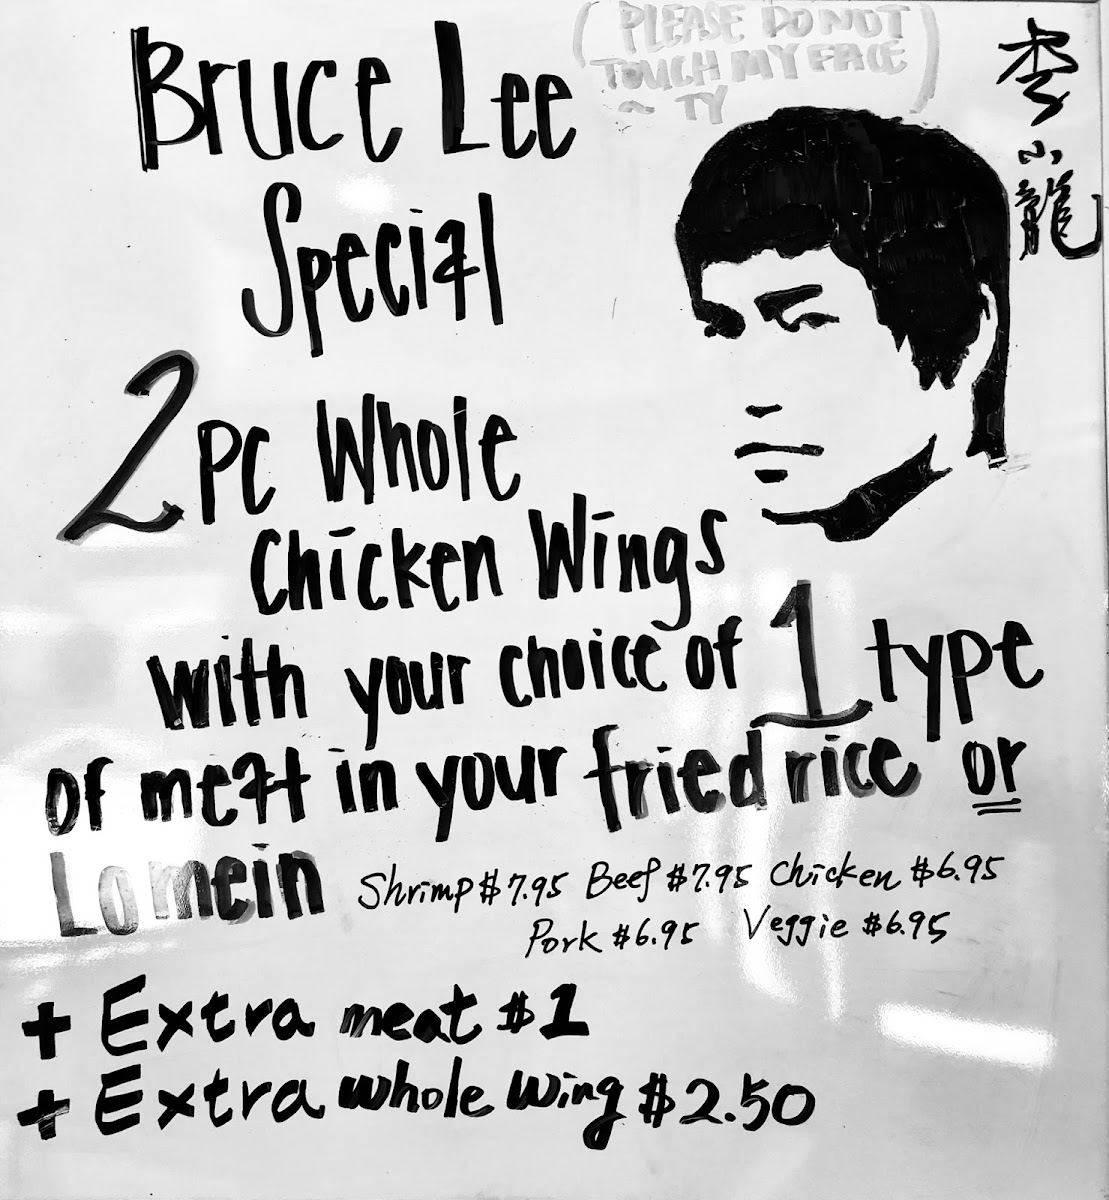 Bruce Lee
Special
(PLEASE DO NOT
TOUCH MY FACE
~ TY)
李小龍
2 PC Whole
Chicken Wings
with your choice of 1 type
of meat in your fried rice or
Lomein
Shrimp $7.95 Beef $7.95 Chicken $6.95
Pork $6.95 Veggie $6.95
+ Extra meat $1
+ Extra whole wing $2.50